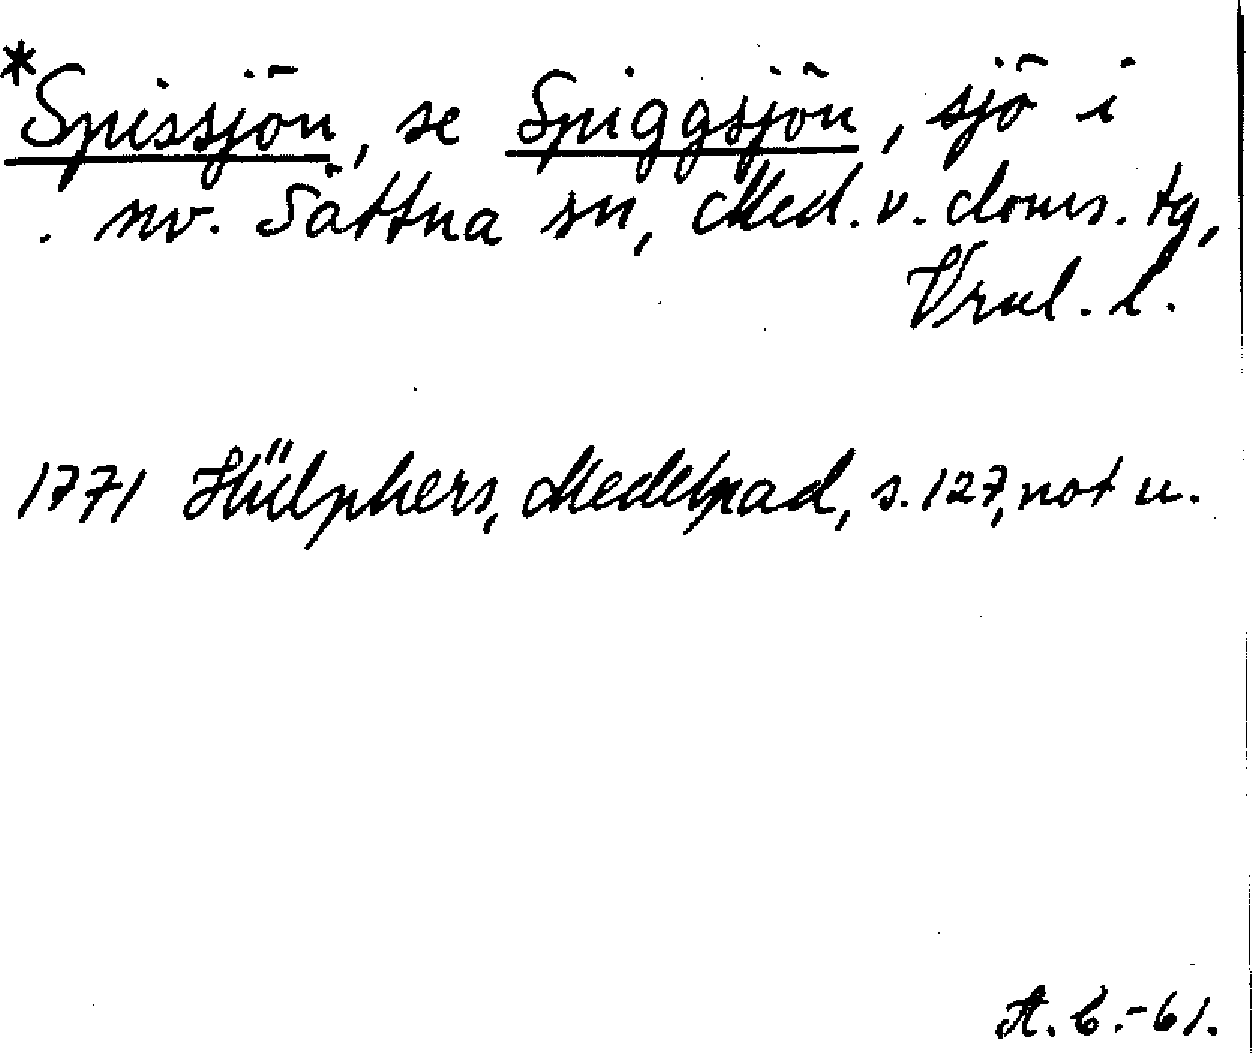 *Spissjön, se Spiggsjön, sjö i
nv. Sättna sn, Med. v. doms. tg,
Vrnl. l.
1771 Hülphers, Medelpad, s. 127, not u.
A. C. -61.